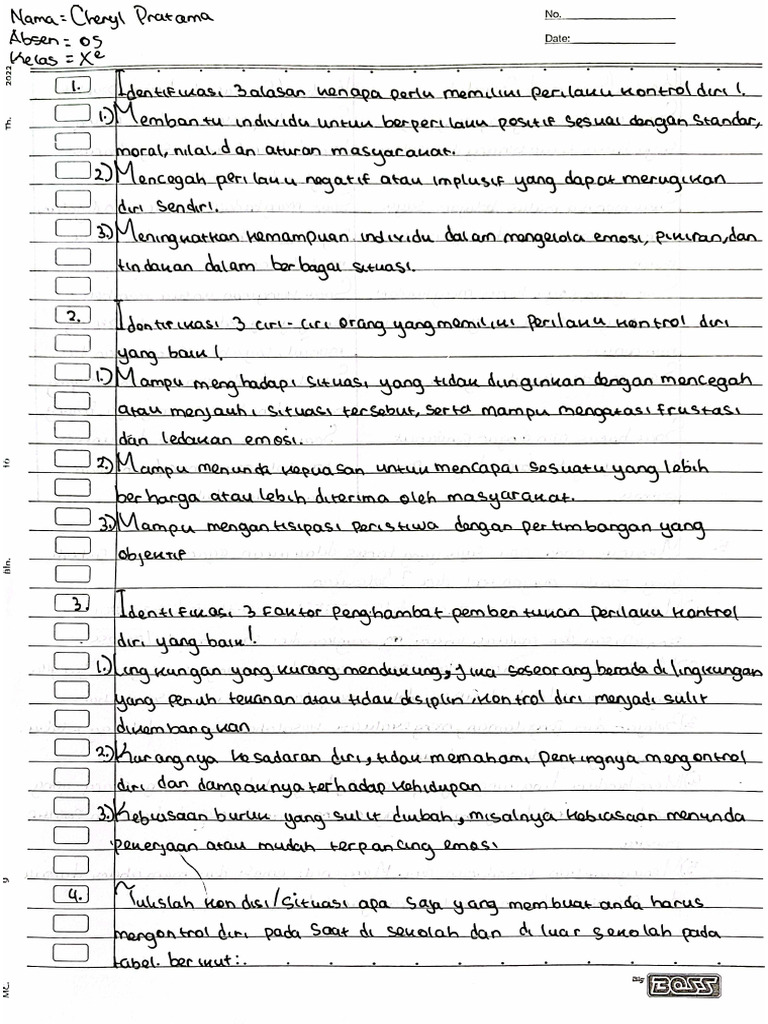 Nama = Cheryl Pratama
No.
Absen = 05
Date:
Kelas = Xe
1. Identifikasi 3 alasan kenapa perlu memiliki perilaku kontrol diri !.
1.) Membantu individu untuk berperilaku positif sesuai dengan standar,
moral, nilai, dan aturan masyarakat.
2.) Mencegah perilaku negatif atau implusif yang dapat merugikan
diri sendiri.
3.) Meningkatkan kemampuan individu dalam mengelola emosi, pikiran, dan
tindakan dalam berbagai situasi.
2. Identifikasi 3 ciri-ciri orang yang memiliki perilaku kontrol diri
yang baik !.
1.) Mampu menghadapi situasi yang tidak diinginkan dengan mencegah
atau menjauhi situasi tersebut, serta mampu mengatasi frustasi
dan ledakan emosi.
2.) Mampu menunda kepuasan untuk mencapai sesuatu yang lebih
berharga atau lebih diterima oleh masyarakat.
3.) Mampu mengantisipasi peristiwa dengan pertimbangan yang
objektif
3. Identifikasi 3 faktor penghambat pembentukan perilaku kontrol
diri yang baik !
1.) Lingkungan yang kurang mendukung, jika seseorang berada di lingkungan
yang penuh tekanan atau tidak disiplin, kontrol diri menjadi sulit
dikembangkan
2.) Kurangnya kesadaran diri, tidak memahami pentingnya mengontrol
diri dan dampaknya terhadap kehidupan
3.) Kebiasaan buruk yang sulit diubah, misalnya kebiasaan menunda
pekerjaan atau mudah terpancing emosi
4. Tulislah kondisi/situasi apa saja yang membuat anda harus
mengontrol diri pada saat di sekolah dan di luar sekolah pada
tabel berikut:.
BOSS